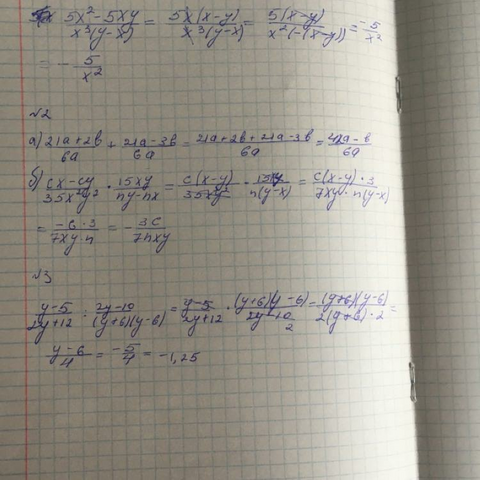 5x² - 5xy / x³(y-x) = 5x(x-y) / x³(y-x) = 5(x-y) / x²(-(x-y)) = -5 / x²
= - 5 / x²
№2
а) 21a+2b / 6a + 21a-3b / 6a = 21a+2b+21a-3b / 6a = 42a-b / 6a
б) cx-cy / 35x²y² · 15xy / ny-nx = c(x-y) / 35x²y² · 15xy / n(y-x) = c(x-y)·3 / 7xy·n(y-x)
= -c·3 / 7xy·n = - 3c / 7nxy
№3
y-5 / 2y+12 : 2y-10 / (y+6)(y-6) = y-5 / 2y+12 · (y+6)(y-6) / 2y-10 2 = (y+6)(y-6) / 2(y+6)·2 =
y-6 / 4 = -5 / 4 = -1,25